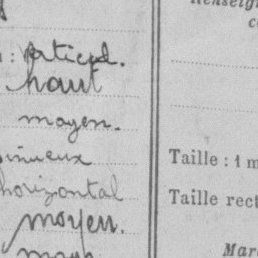 vertical.
haut
moyen.
sinueux
horizontal
moyen.
Renseign
Taille : 1 m
Taille rect
Mar